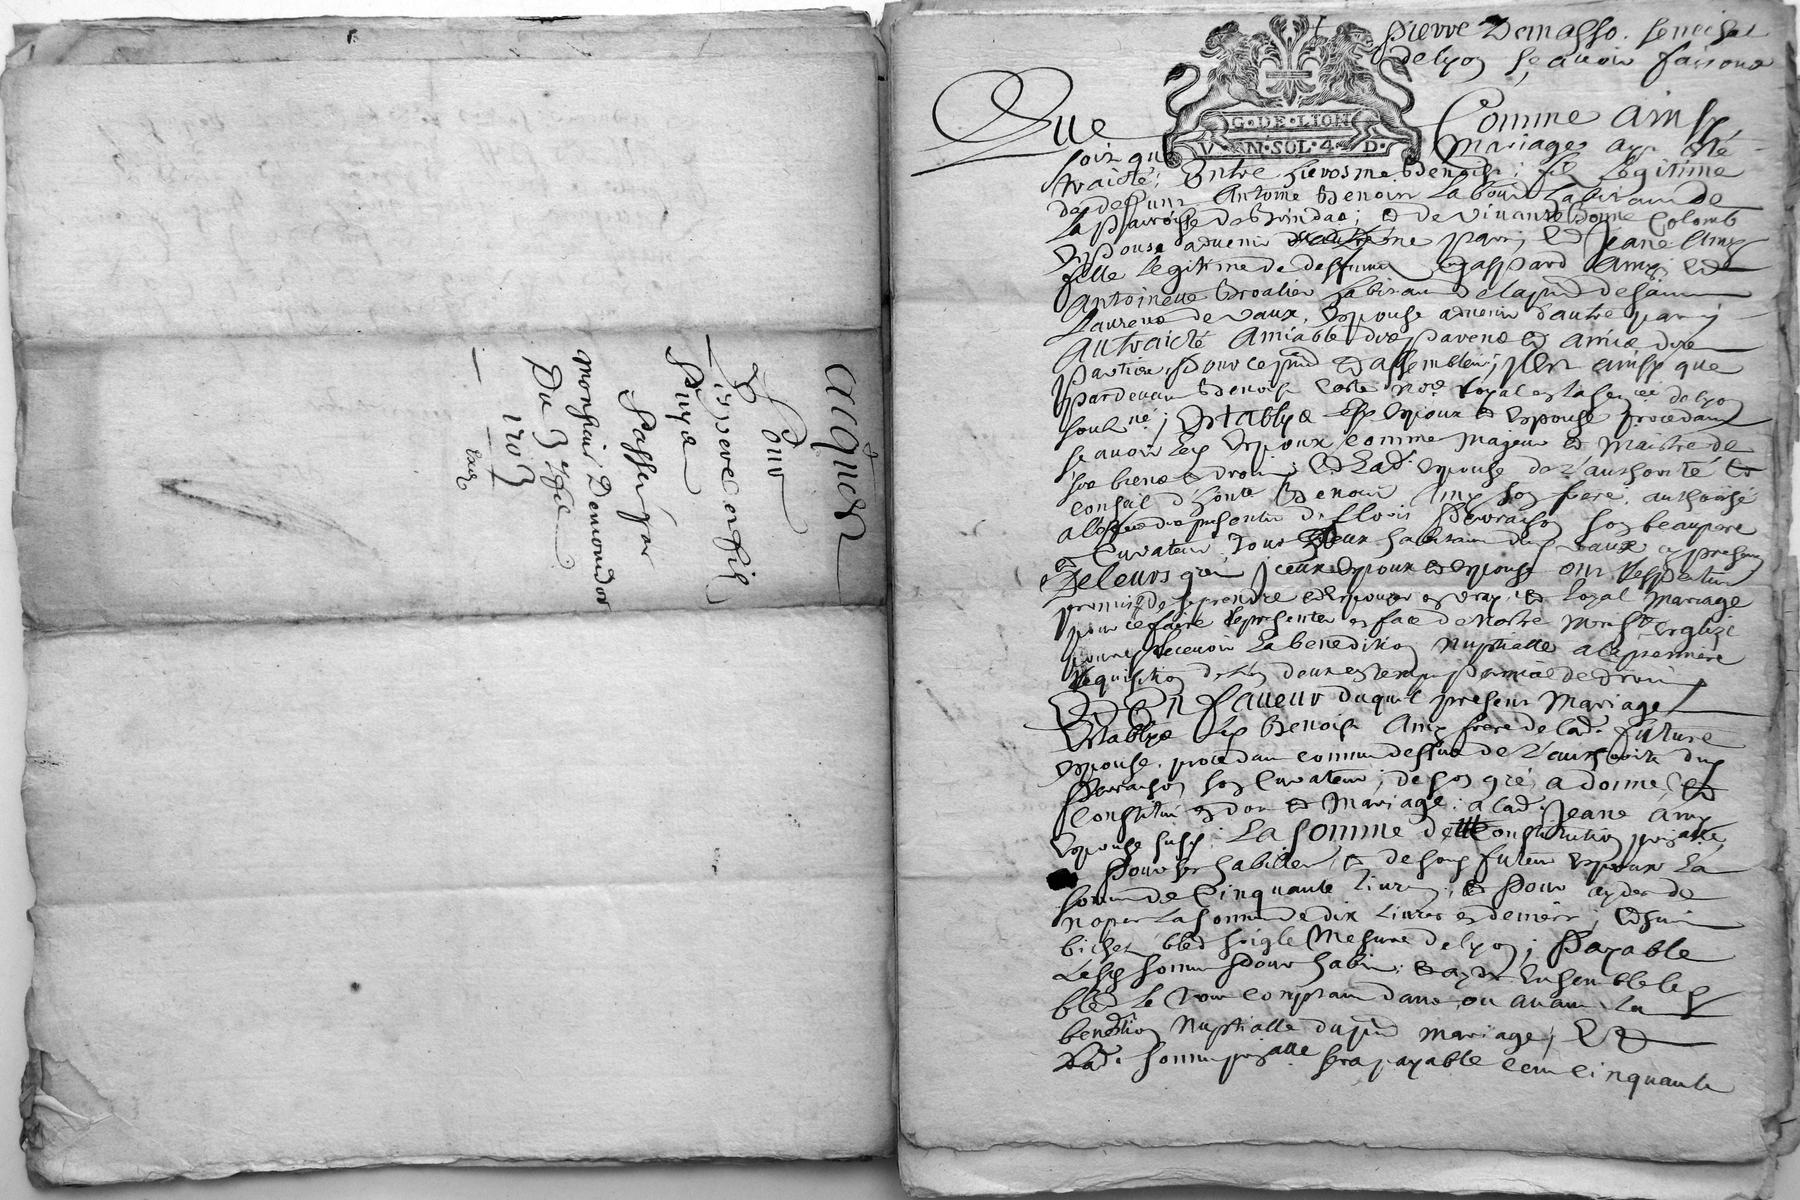 acquer
Pour
Puyæ
Passé par
monsieur Demondor
Du 3e
1703
pierre Demasso. senechal
de lyon sçavoir faisons
G·DE·LION
V·N·SOL·4·D·
Que
Comme ainsy
soit que mariage aye été
traicté; Entre hierosme Benoist; fils Legitime
de deffunt Antoine Benoist Laboureur habitant de
La parroisse de Brindas; Et de vivante Colomb
Espoux advenir d'une part; Et Jeane Amy
fille Legitime de deffunt Gaspard Amy; Et
Antoinette habitant de la par de saint
Laurens de vaux, Espouse advenir d'autre part;
Au traicté Amiable des parens Et Amis des
parties, pour ce Assemblées; Est ainsy que
pardevant Benoist nore Royal en la senée de lyon
soubné; Establys Espoux Et Espouse procedant
sçavoir Led Espoux comme mageur Et Maistre de
ses biens Et droits; Et Lad Espouse de L'authorité Et
conseil d' Benoist Amy son frere, authorisé
son beaupere
Curateur, Tous deux habitans dud vaux cy presens
De leurs grés Iceux Espoux Et Espouse ont
promis de se prendre Et Espouser en vray Et Loyal Mariage
pour ce faire se presenter en face de Nostre Eglize
pour y Recevoir La benediction Nuptialle a la premiere
Requisition de L'un deux
Et En faveur duquel present Mariage
Establys Led Benoist Amy frere de lad. future
Espouse, procedant comme dessus de L'authorité dud
son Curateur; de son gré, a donné Et
Constitué en dot Et Mariage: a lad. Jeane Amy
Espouse susd; La somme de Constitution prinalle,
Pour ses habiller, Et de son futeur Espoux La
somme de Cinquante Livres; Et Pour ayder de
Noper La somme de dix Livres en deniers; Et un
bichet bled seigle Mesure de lyon; Payable
Lesd sommes pour habits; Et ayde Ensemble led
bled Le tout comptant dans, ou avant La
benediction Nuptialle du pnt mariage; Et
Lad. somme prinalle sera payable cent cinquante